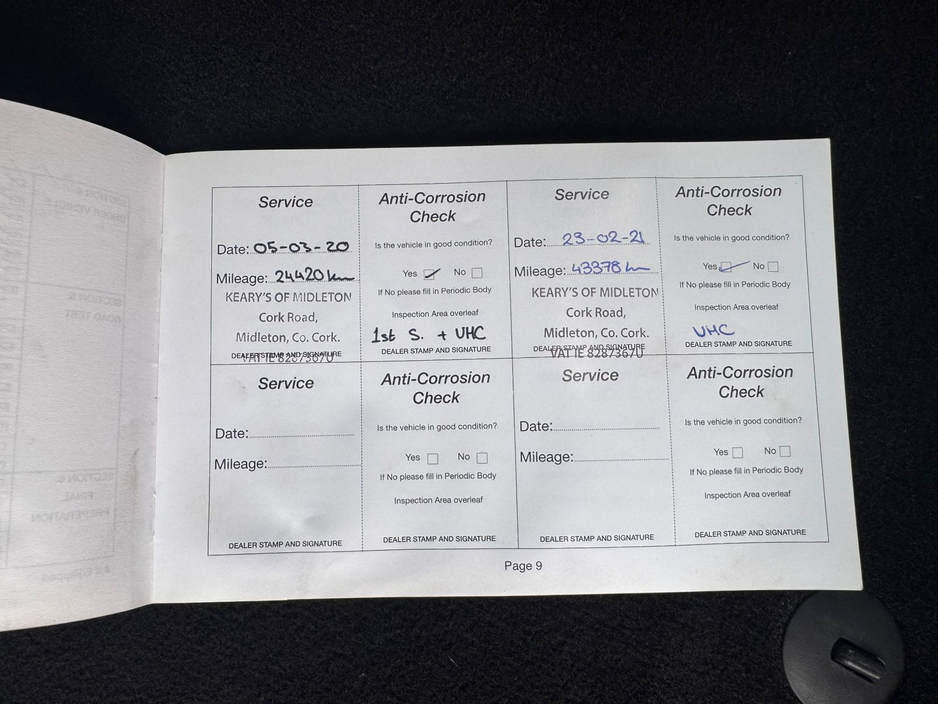 Service
Date: 05-03-20
Mileage: 24420 km
KEARY'S OF MIDLETON
Cork Road,
Midleton, Co. Cork.
DEALER STAMP AND SIGNATURE
VAT IE 8287367U
Anti-Corrosion
Check
Is the vehicle in good condition?
Yes No
If No please fill in Periodic Body
Inspection Area overleaf
1st S. + VHC
DEALER STAMP AND SIGNATURE
Service
Date: 23-02-21
Mileage: 43378 km
KEARY'S OF MIDLETON
Cork Road,
Midleton, Co. Cork.
DEALER STAMP AND SIGNATURE
VAT IE 8287367U
Anti-Corrosion
Check
Is the vehicle in good condition?
Yes No
If No please fill in Periodic Body
Inspection Area overleaf
VHC
DEALER STAMP AND SIGNATURE
Service
Date:
Mileage:
DEALER STAMP AND SIGNATURE
Anti-Corrosion
Check
Is the vehicle in good condition?
Yes No
If No please fill in Periodic Body
Inspection Area overleaf
DEALER STAMP AND SIGNATURE
Service
Date:
Mileage:
DEALER STAMP AND SIGNATURE
Anti-Corrosion
Check
Is the vehicle in good condition?
Yes No
If No please fill in Periodic Body
Inspection Area overleaf
DEALER STAMP AND SIGNATURE
Page 9